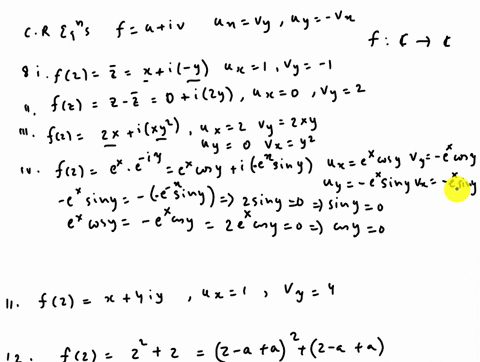 C.R Eqⁿs f = u+iv uₓ = v_y , u_y = -vₓ
f : ℂ → ℂ
8 i. f(z) = z̄ = x + i(-y) uₓ = 1 , v_y = -1
ii. f(z) = z - z̄ = 0 + i(2y) , uₓ = 0 , v_y = 2
iii. f(z) = 2x + i(xy²) , uₓ = 2 v_y = 2xy
u_y = 0 vₓ = y²
iv. f(z) = eˣ · e^{-iy} = eˣ cos y + i(-eˣ sin y) uₓ = eˣ cos y v_y = -eˣ cos y
u_y = -eˣ sin y vₓ = -eˣ sin y
-eˣ sin y = -(-eˣ sin y) => 2 sin y = 0 => sin y = 0
eˣ cos y = -eˣ cos y = 2eˣ cos y = 0 => cos y = 0
11. f(z) = x + 4iy , uₓ = 1 , v_y = 4
12. f(z) = z² + z = (z-a+a)² + (z-a+a)